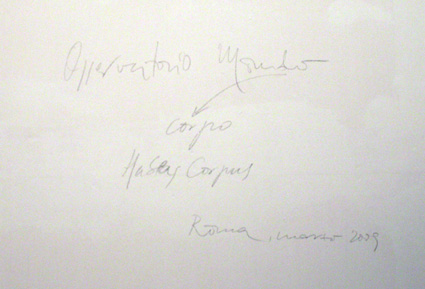 Osservatorio Mondo
corpo
Habeas Corpus
Roma, marzo 2009